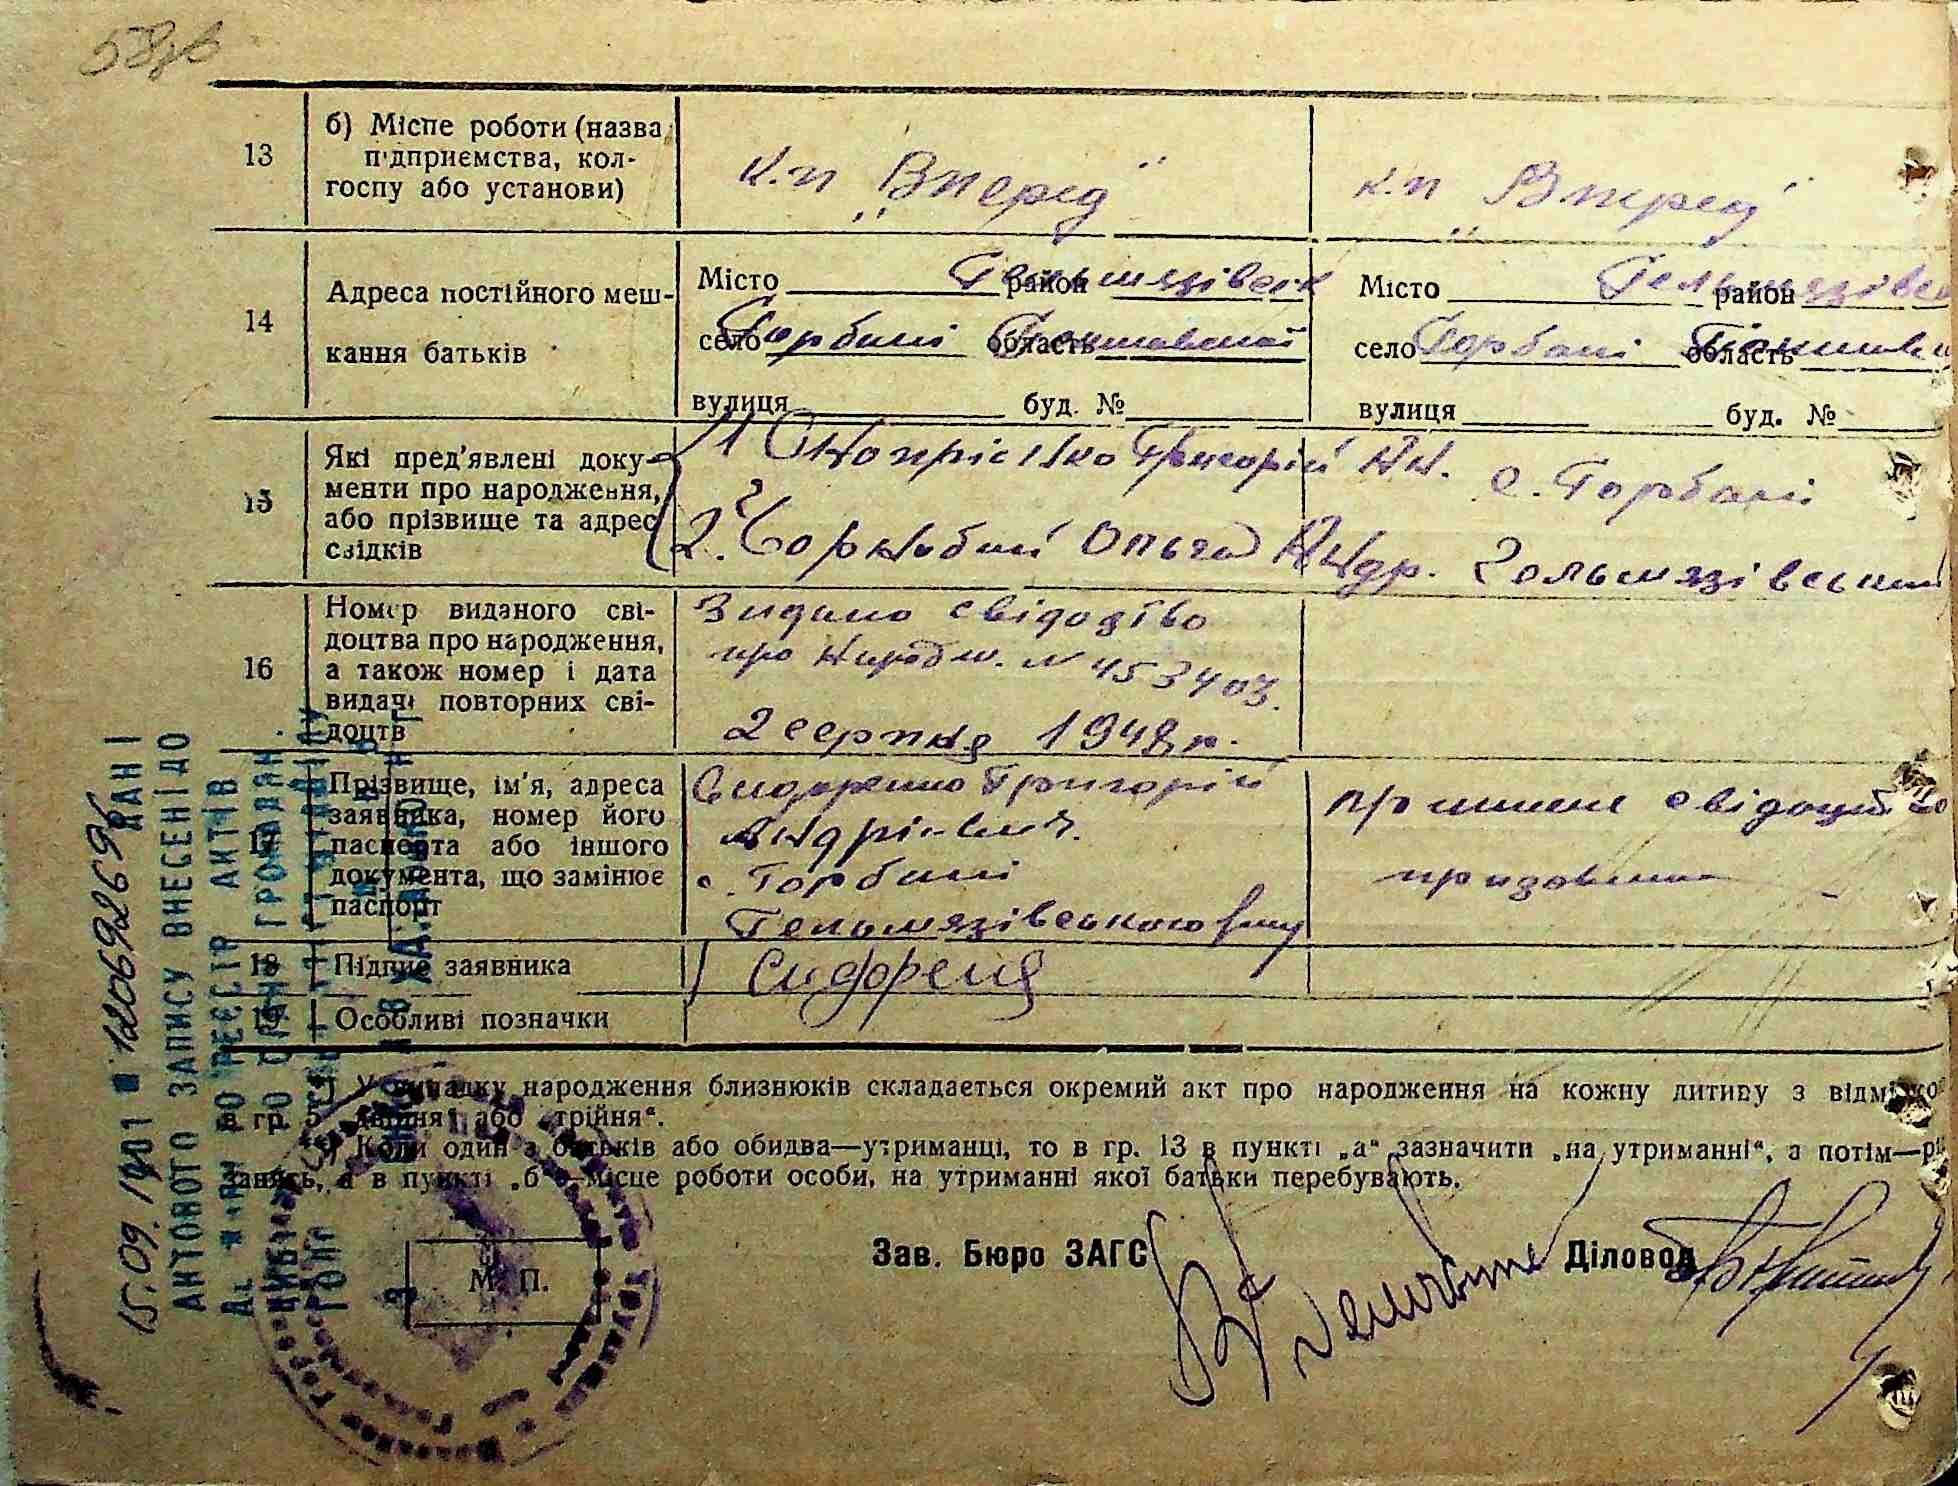 58зв
13
б) Місце роботи (назва
підприємства, кол-
госпу або установи)
к.п „Вперед"
к.п „Вперед"
14
Адреса постійного меш-
кання батьків
Місто район Гельмязівськ
село Горбані область Полтавської
вулиця буд. №
Місто район Гельмязівськ
село Горбані область
вулиця буд. №
15
Які пред'явлені доку-
менти про народження,
або прізвище та адрес
свідків
1 Григорій Ан. с. Горбані
2. Чорнобай Ольга Андр. Гельмязівський
16
Номер виданого сві-
доцтва про народження,
а також номер і дата
видачі повторних сві-
доцтв
Видано свідодтво
про народж. № 453403.
2 серпня 1948 р.
17
Прізвище, ім'я, адреса
заявника, номер його
паспорта або іншого
документа, що замінює
паспорт
Сидоренко Григорій
Андрієвич.
с. Горбані
Гельмязівського р-ну
18
Підпис заявника
Сидоренко
19
Особливі позначки
У випадку народження близнюків складається окремий акт про народження на кожну дитину з
в гр. 5 „двійня" або „трійня".
Коли один з батьків або обидва—утриманці, то в гр. 13 в пункті „а" зазначити „на утриманні", а потім—рі
занять, а в пункті „б"—місце роботи особи, на утриманні якої батьки перебувають.
Зав. Бюро ЗАГС
Діловод
М. П.
ДАНІ
АКТОВОГО ЗАПИСУ ВНЕСЕНІ ДО
ДО РЕЄСТР АКТІВ